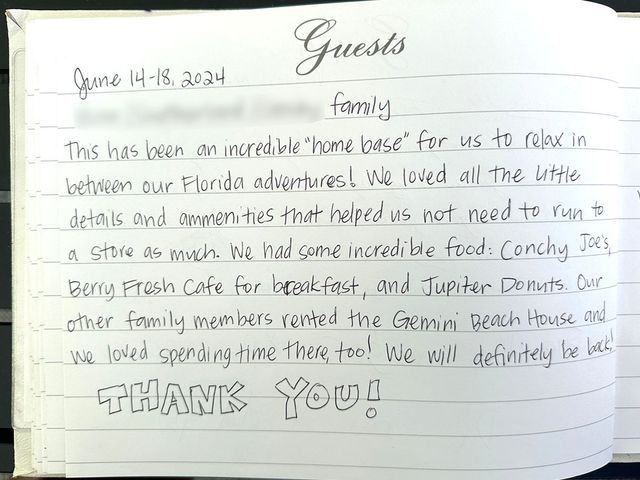 Guests
June 14-18, 2024
family
This has been an incredible "home base" for us to relax in
between our Florida adventures! We loved all the little
details and ammenities that helped us not need to run to
a store as much. We had some incredible food: Conchy Joe's,
Berry Fresh Cafe for breakfast, and Jupiter Donuts. Our
other family members rented the Gemini Beach House and
we loved spending time there, too! We will definitely be back!
THANK YOU!